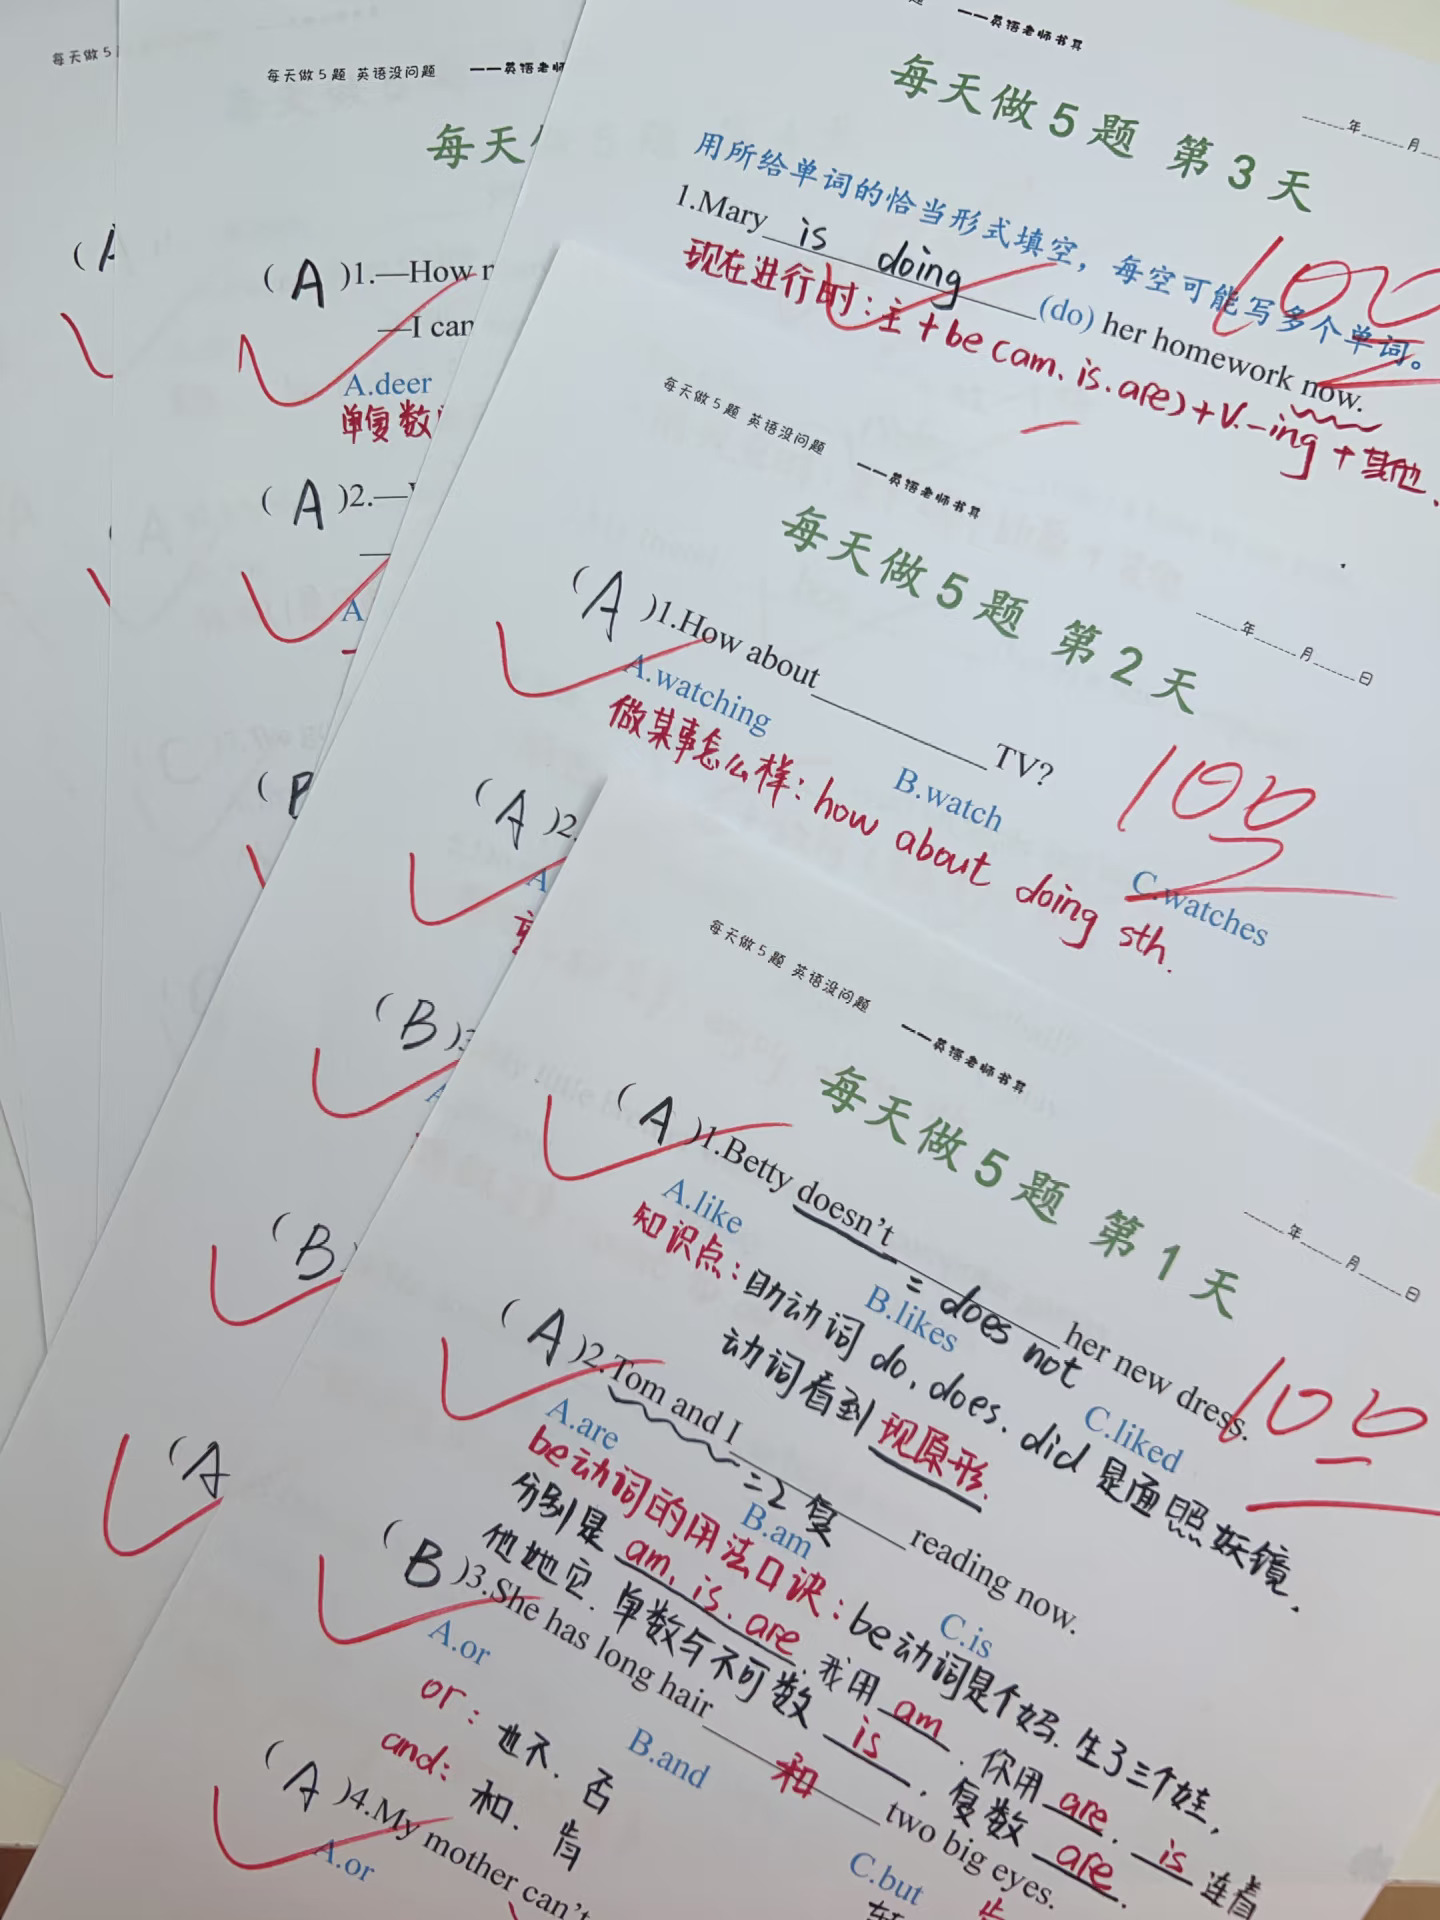 每天做5
每天做5题 英语没问题 ——英语老师书
每天
(A)1.—How
—I can
A.deer
单复数
(A)2.—
—
A
——英语老师书耳
每天做5题 第3天
年 月
用所给单词的恰当形式填空，每空可能写多个单词。
100
1.Mary is doing (do) her homework now.
现在进行时：主+be(am.is.are)+V.-ing+其他.
每天做5题 英语没问题 ——英语老师书耳
每天做5题 第2天
年 月 日
(A)1.How about TV?
A.watching B.watch C.watches
100
做某事怎么样：how about doing sth.
(A)2.
A
(B)3
A
(B)
(A
每天做5题 英语没问题 ——英语老师书耳
每天做5题 第1天
年 月 日
(A)1.Betty doesn't = does not her new dress.
A.like B.likes C.liked
100
知识点：助动词do.does.did是面照妖镜.
动词看到现原形.
(A)2.Tom and I =2 复 reading now.
A.are B.am C.is
be动词的用法口诀：be动词是个妈.生了三个娃，
分别是am.is.are.我用am.你用are.is连着
他她它.单数与不可数is，复数are.
(B)3.She has long hair 和 two big eyes.
A.or B.and C.but
or：也不.否
and：和.肯
(A)4.My mother can't
A.or